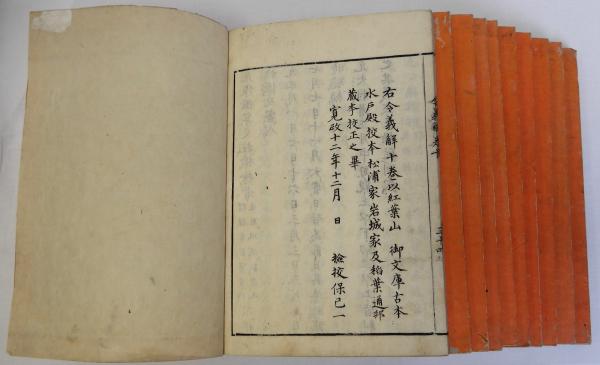 右令義解十巻以紅葉山　御文庫古本
水戸殿挍本松浦家岩城家及稲葉通邦
蔵本挍正之畢
寛政十二年十二月　日　　撿挍保己一